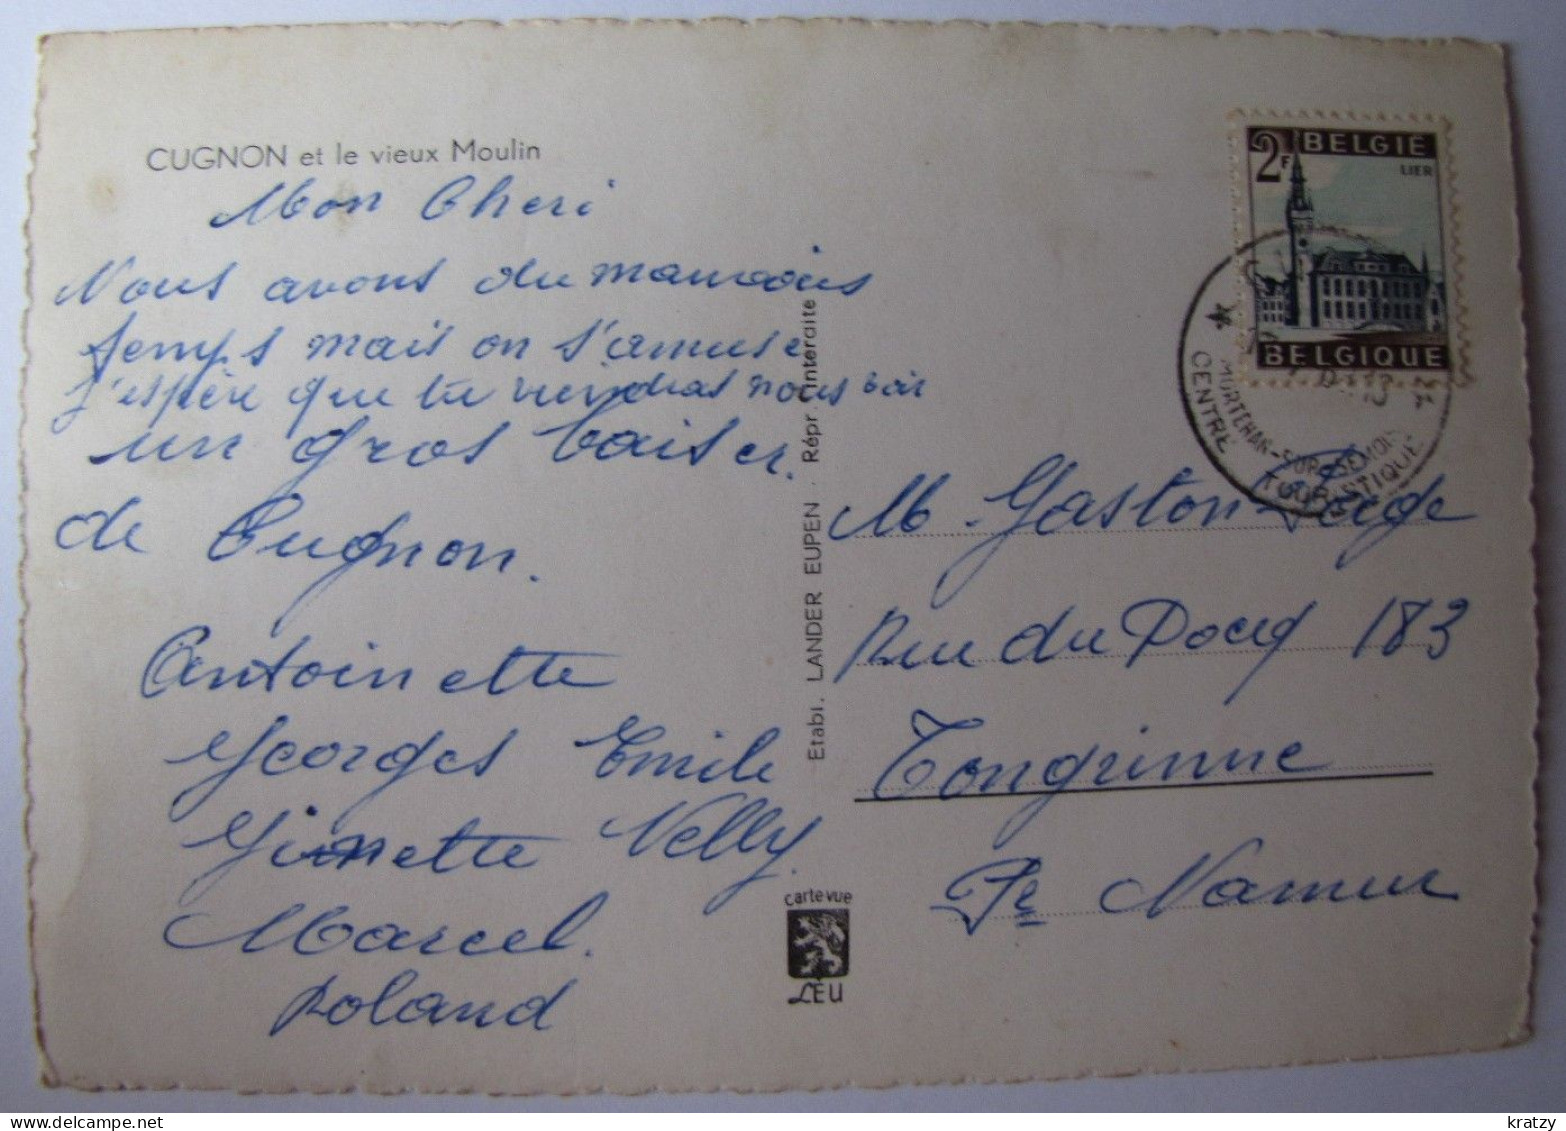 CUGNON et le vieux Moulin
Mon Cheri
Nous avons du mauvais
temps mais on s'amuse
j'espère que tu viendras nous voir
un gros baiser.
de Cugnon.
Antoinette
Georges Emile
Ginette Nelly
Marcel.
Roland
Etabl. LANDER EUPEN. Répr. Interdite
carte vue
LEU
2F BELGIE
LIER
BELGIQUE
MORTEHAN-SUR-SEMOIS
CENTRE TOURISTIQUE
M. Gaston
Rue du 183
Tongrinne
Pr Namur
kratzy